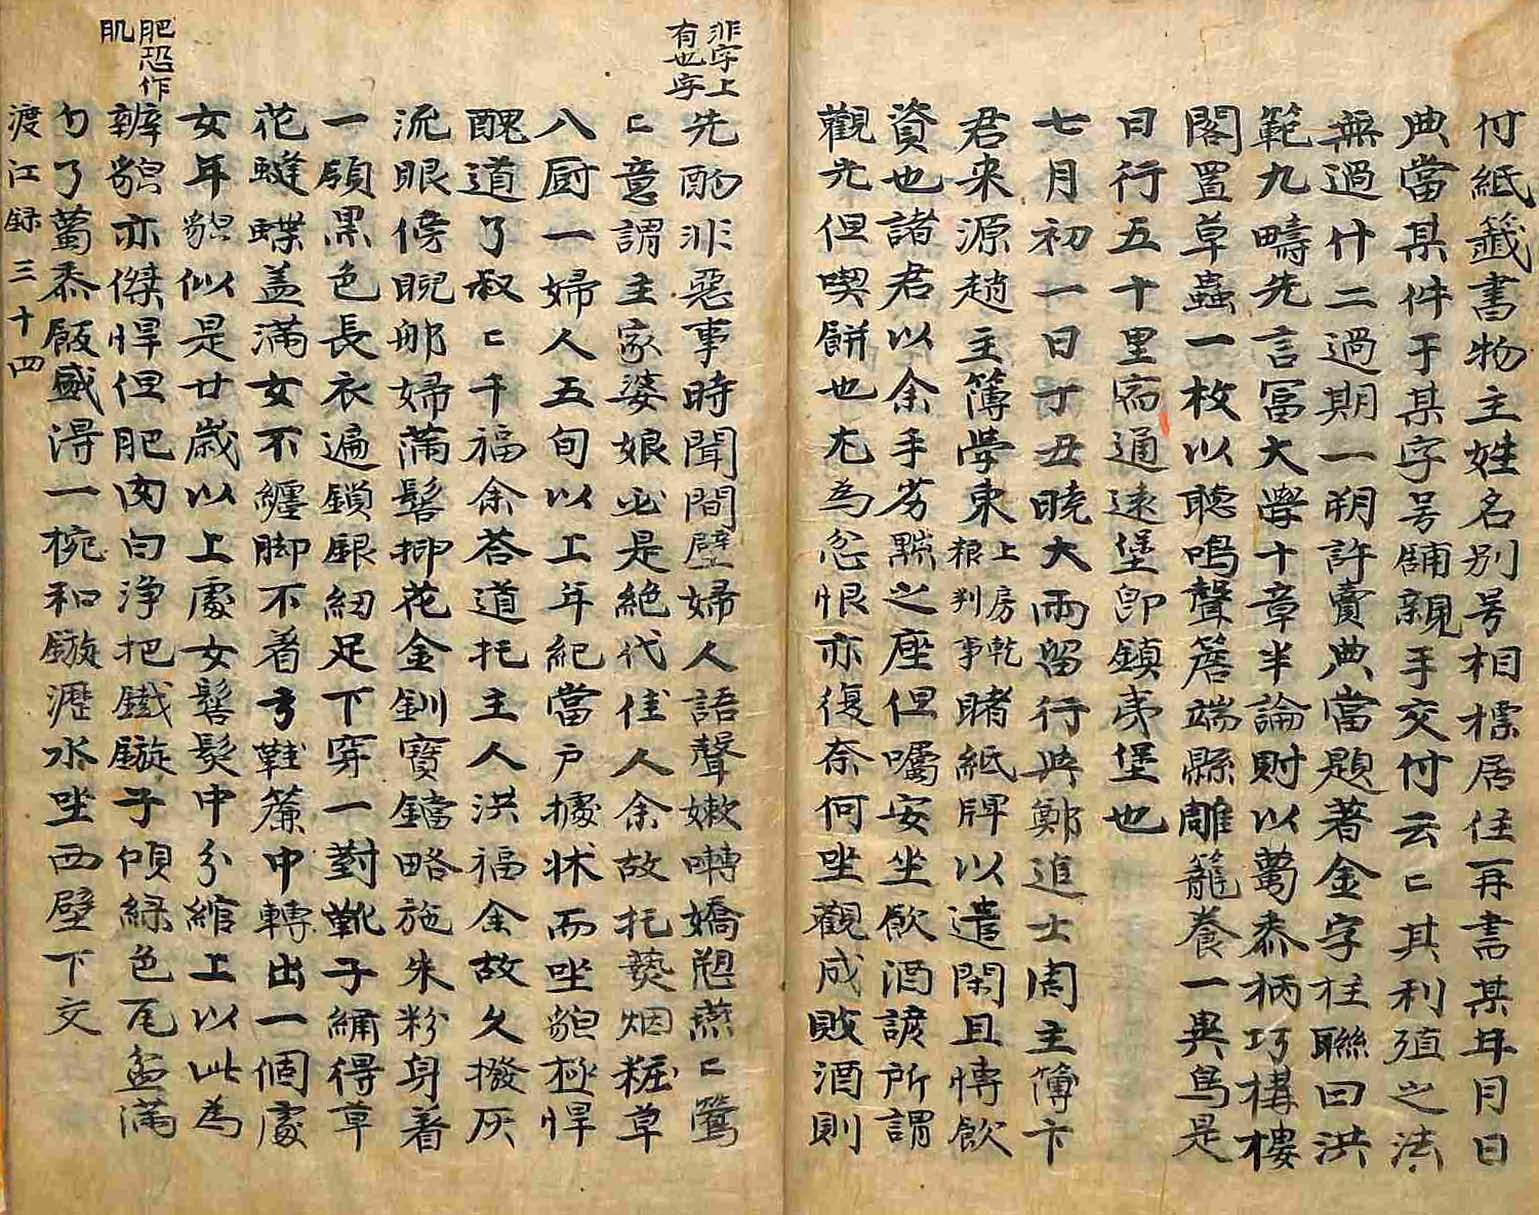 付紙籤書物主姓名別号相標居住再書某年月日
典當某件于某字号舖親手交付云〻其利殖之法
無過什二過期一朔許賣典當題著金字柱聯曰洪
範九疇先言富大學十章半論財以薥黍柄巧構樓
閣置草蟲一枚以聽鳴聲簷端縣雕籠養一異鳥是
日行五十里宿通遠堡卽鎮夷堡也
七月初一日丁丑曉大雨留行與鄭進士周主簿卞
君来源趙主簿學東上房乾粮判事賭紙牌以遣閑且博飲
資也諸君以余手劣黜之座但囑安坐飲酒諺所謂
觀光但喫餅也尤為忿恨亦復奈何坐觀成敗酒則
非字上有也字
先酌非惡事時聞間壁婦人語聲嫩囀嬌愬燕〻鶯
〻意謂主家婆娘必是絶代佳人余故托爇烟粧草
八厨一婦人五旬以上年紀當戶據牀而坐貌極悍
醜道了叔〻千福余荅道托主人洪福余故久撥灰
流眼傍睨那婦滿髻挿花金釧寶鐺略施朱粉身着
一領黒色長衣遍鎖銀紐足下穿一對靴子繡得草
花蜂蝶盖滿女不纏脚不着弓鞋簾中轉出一個處
女年貌似是廿歲以上處女髻髮中分綰上以此為
辨貌亦傑悍但肥肉白淨把鐵鏇子傾綠色瓦盆滿
肥恐作肌
勺了薥黍飯盛得一椀和鏇瀝水坐西壁下交
渡江録 三十四